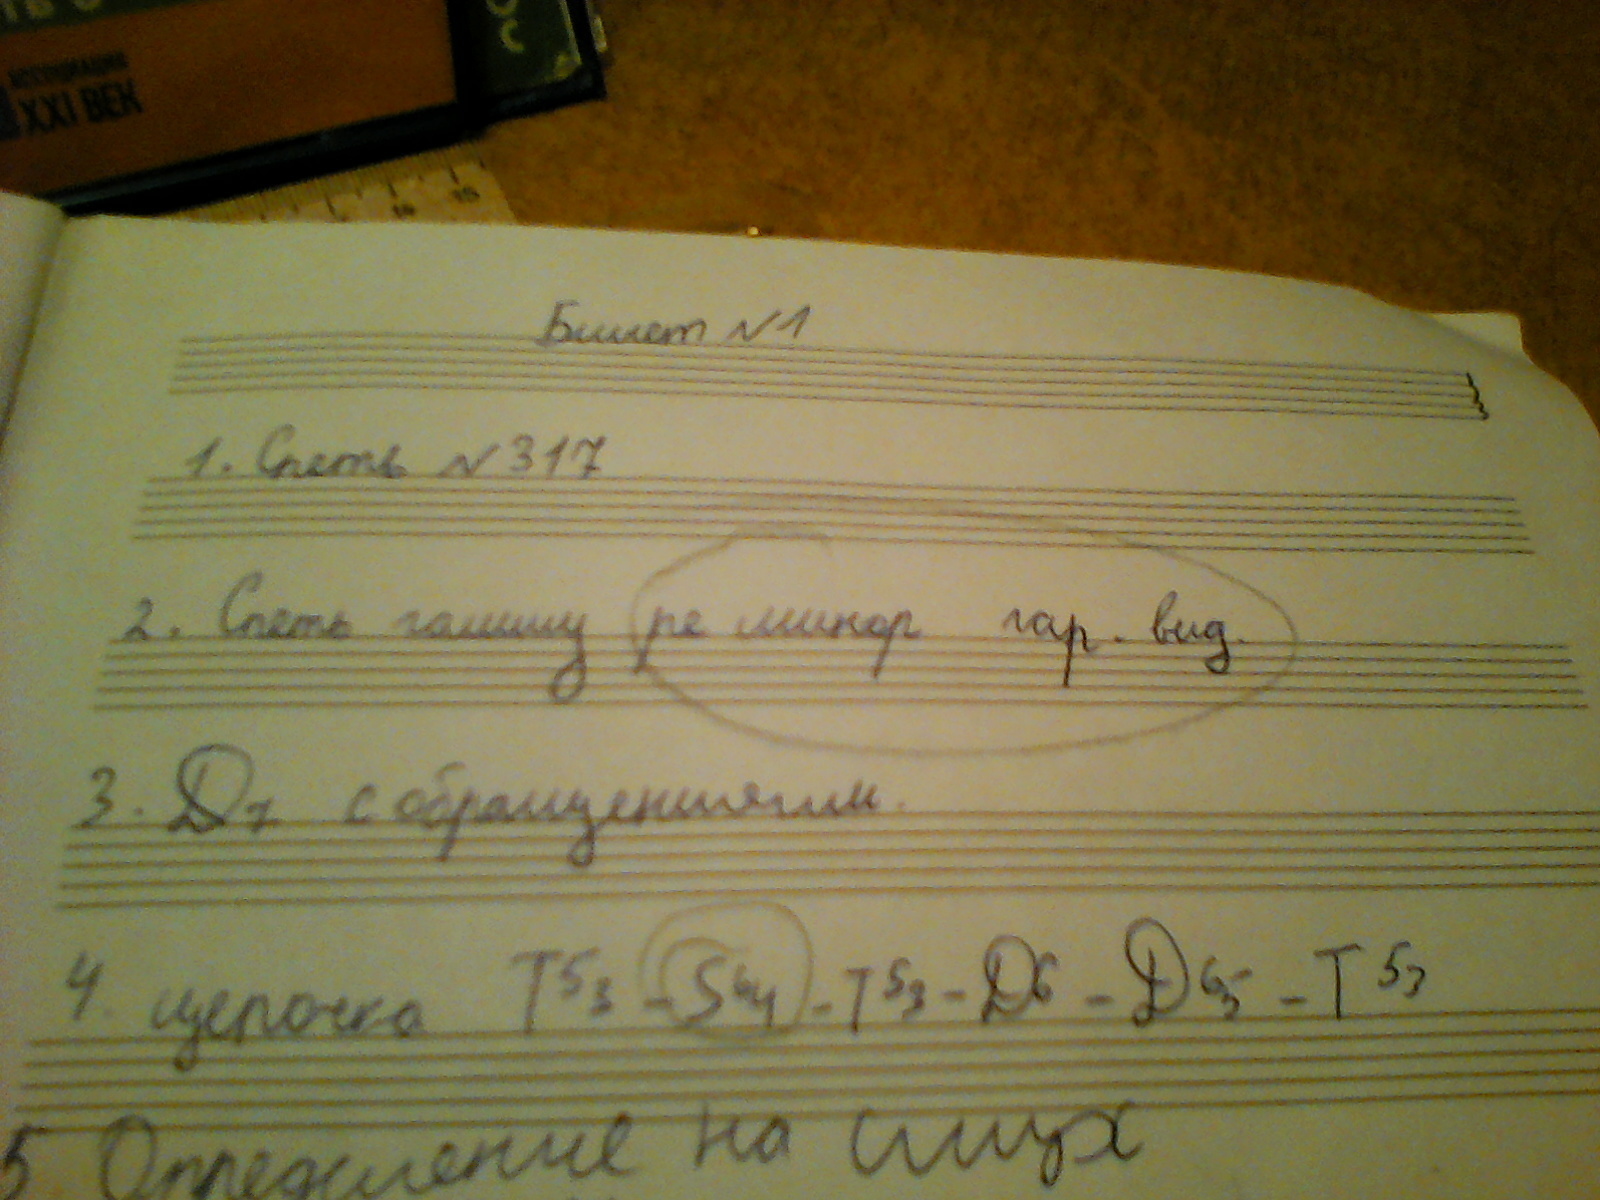 АССОЦИАЦИЯ
XXI ВЕК
Билет №1
1. Спеть №317
2. Спеть гамму ре минор гар. вид.
3. D7 с обращениями.
4. цепочка T53 - S64 - T53 - D6 - D65 - T53
5 Определение на слух